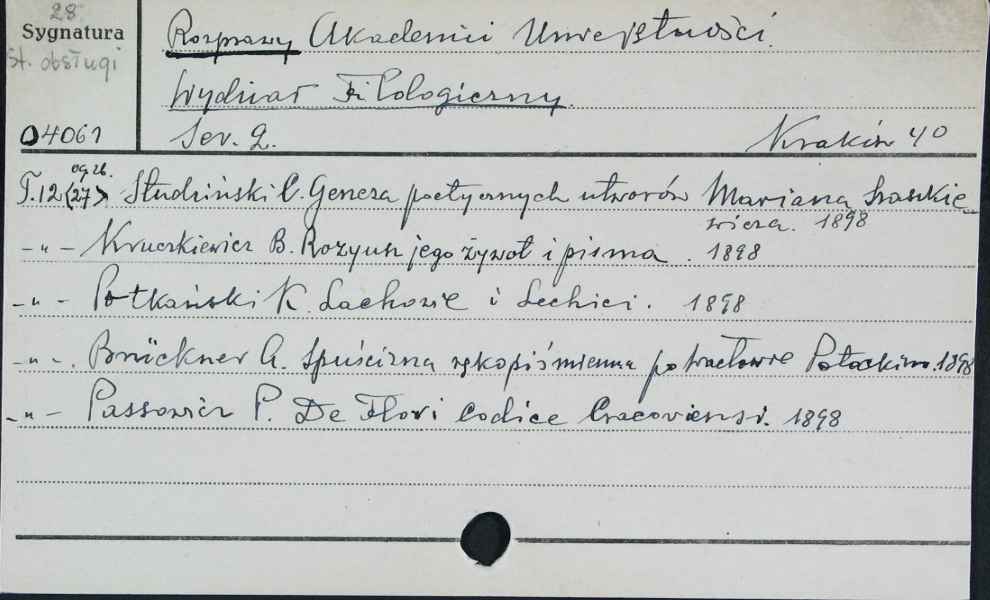 28
Sygnatura
st. obsługi
04061
Rozprawy Akademii Umiejętności.
Wydział Filologiczny.
Ser. 2.
Kraków 4°
T. 12 (27) og. zb. Studziński C. Geneza poetycznych utworów Mariana Szaszkie-
wicza. 1898
-„- Kruczkiewicz B. Rozyusz jego żywot i pisma. 1898
-„- Potkański K. Lachowie i Lechici. 1898
-„-. Brückner A. Spuścizna rękopiśmienna po Wacławie Potockim. 1898
-„- Passowicz P. De Flori Codice Cracoviensi. 1898